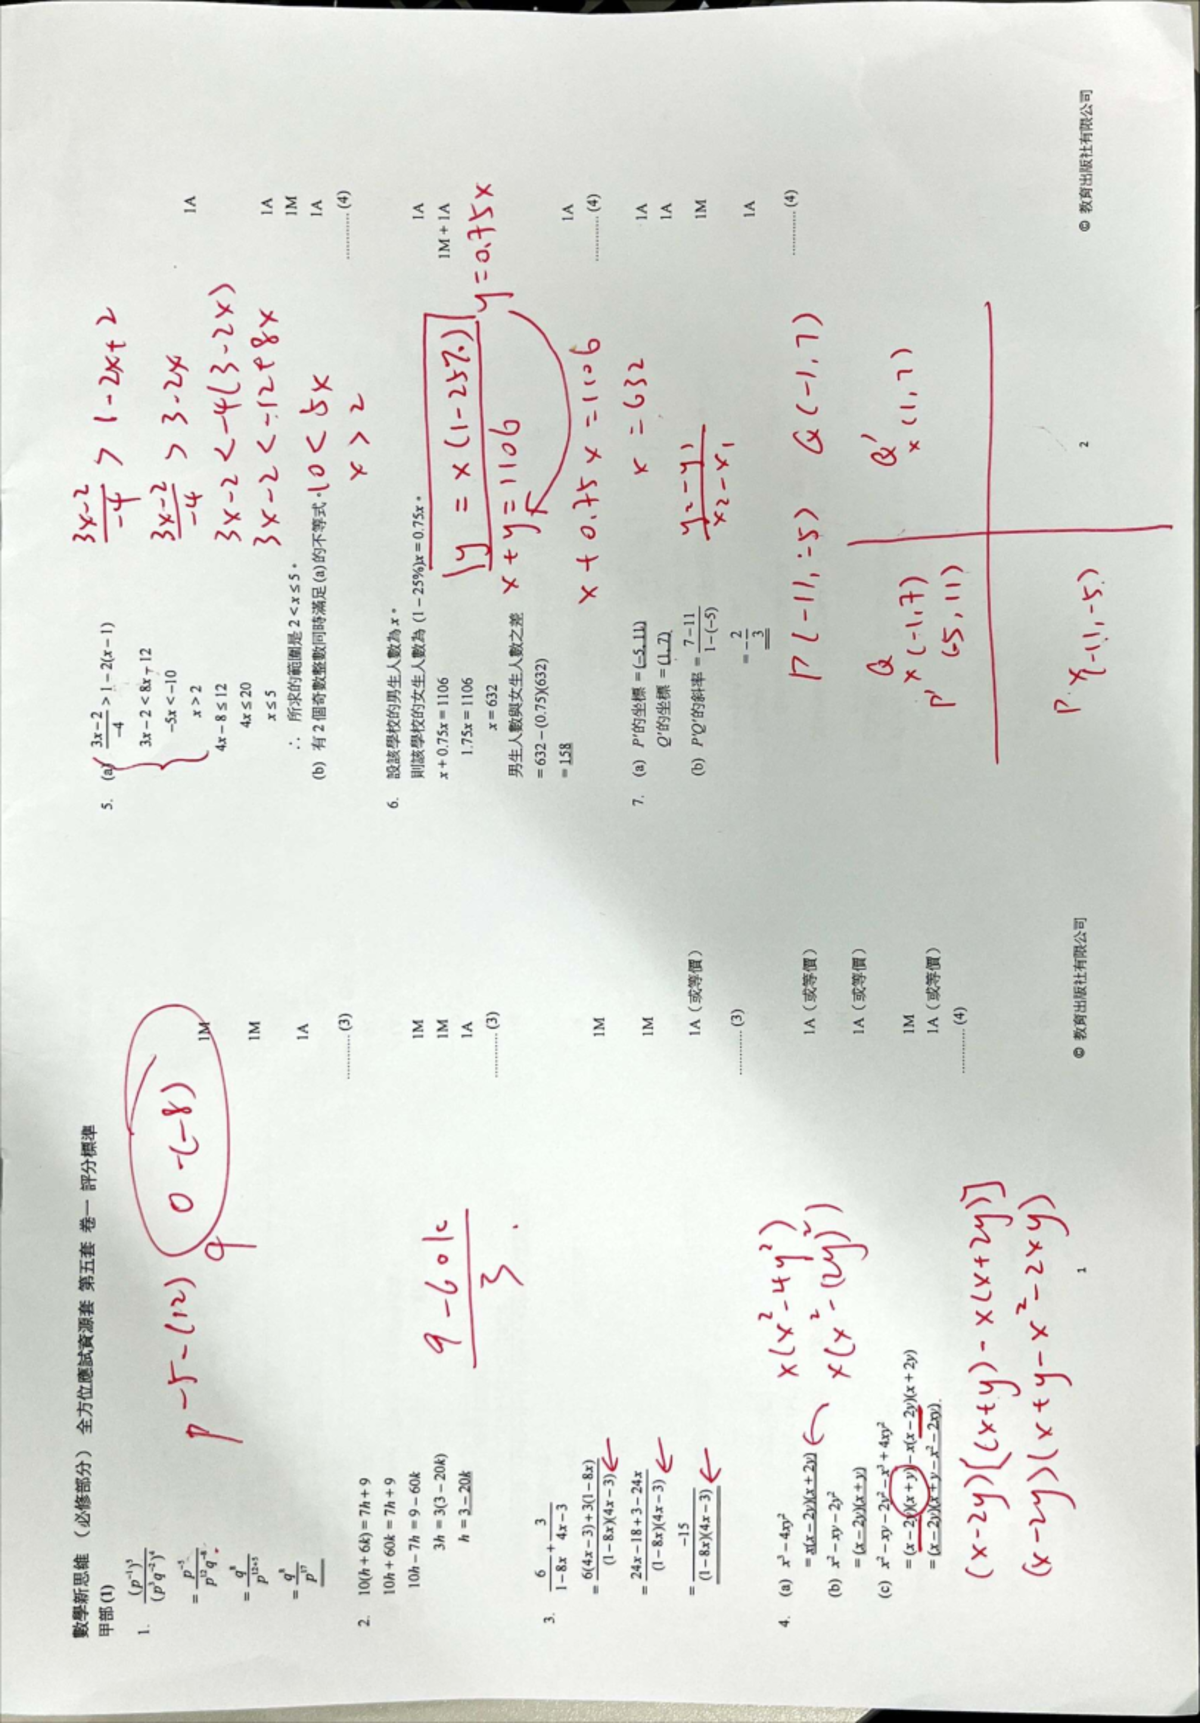 數學新思維（必修部分） 全方位應試資源套 第五套 卷一 評分標準
甲部 (1)
1. (p⁻¹)⁵/(p³q⁻²)⁴
= p⁻⁵/p¹²q⁻⁸ 1M
= q⁸/p¹²⁺⁵ 1M
= q⁸/p¹⁷ 1A
............ (3)
p -5-(12) q 0-(-8)
2. 10(h + 6k) = 7h + 9
10h + 60k = 7h + 9 1M
10h − 7h = 9 − 60k 1M
3h = 3(3 − 20k)
h = 3 − 20k 1A
............ (3)
9-60k/3
3. 6/(1−8x) + 3/(4x−3)
= (6(4x−3)+3(1−8x))/((1−8x)(4x−3)) 1M
= (24x−18+3−24x)/((1−8x)(4x−3)) 1M
= −15/((1−8x)(4x−3)) 1A（或等價）
............ (3)
4. (a) x³ − 4xy²
= x(x − 2y)(x + 2y) 1A（或等價）
x(x²-4y²)
x(x²-(2y)²)
(b) x² − xy − 2y²
= (x − 2y)(x + y) 1A（或等價）
(c) x² − xy − 2y² − x³ + 4xy²
= (x − 2y)(x + y) − x(x − 2y)(x + 2y) 1M
= (x − 2y)(x + y − x² − 2xy) 1A（或等價）
............ (4)
(x-2y)[(x+y)-x(x+2y)]
(x-2y)(x+y-x²-2xy)
1
© 教育出版社有限公司
5. (a) (3x−2)/−4 > 1 − 2(x − 1)
3x − 2 < 8x − 12
−5x < −10
x > 2 1A
4x − 8 ≤ 12
4x ≤ 20
x ≤ 5 1A
∴ 所求的範圍是 2 < x ≤ 5。 1M
(b) 有 2 個奇數整數同時滿足 (a) 的不等式。 1A
............ (4)
3x-2/-4 > 1-2x+2
3x-2/-4 > 3-2x
3x-2 < -4(3-2x)
3x-2 < -12+8x
10 < 5x
x > 2
6. 設該學校的男生人數為 x。
則該學校的女生人數為 (1 − 25%)x = 0.75x。 1A
x + 0.75x = 1106 1M + 1A
1.75x = 1106
x = 632
男生人數與女生人數之差
= 632 − (0.75)(632)
= 158 1A
............ (4)
y = x(1-25%)
y=0.75x
x+y=1106
x+0.75x=1106
x=632
7. (a) P′的坐標 = (−5, 11) 1A
Q′的坐標 = (1, 7) 1A
(b) P′Q′的斜率 = (7−11)/(1−(−5)) 1M
= −2/3 1A
............ (4)
y₂-y₁/x₂-x₁
P(-11,-5) Q(-1,7)
Q
x(-1,7)
P'
(-5,11)
Q'
x(1,7)
P x(-11,-5)
2
© 教育出版社有限公司